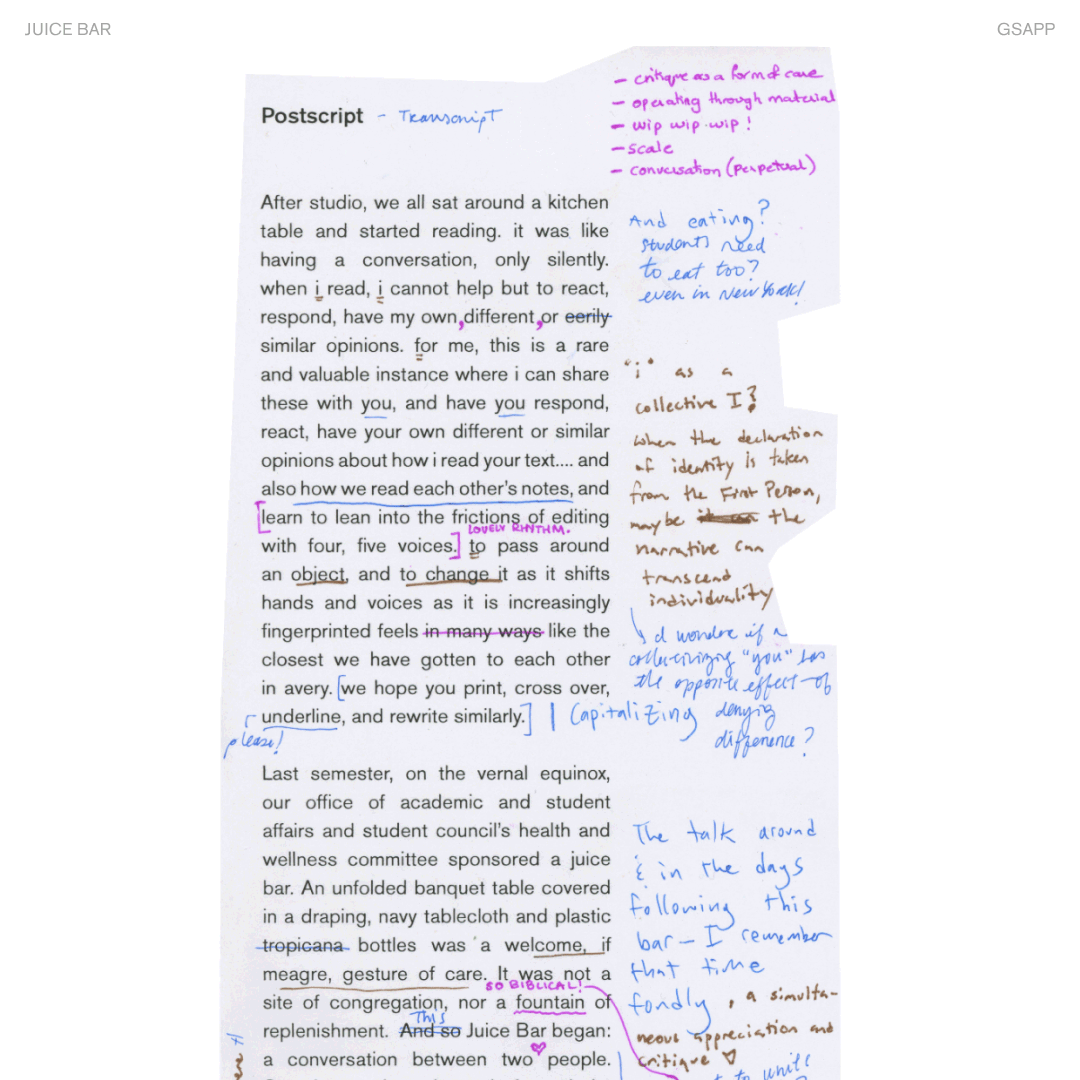 JUICE BAR
GSAPP
- critique as a form of care
- operating through material
- wip wip wip!
- scale
- conversation (perpetual)
Postscript - Transcript
After studio, we all sat around a kitchen
table and started reading. it was like
having a conversation, only silently.
when i read, i cannot help but to react,
respond, have my own, different, or eerily
similar opinions. for me, this is a rare
and valuable instance where i can share
these with you, and have you respond,
react, have your own different or similar
opinions about how i read your text.... and
also how we read each other's notes, and
[learn to lean into the frictions of editing
LOVELY RHYTHM.
with four, five voices.] to pass around
an object, and to change it as it shifts
hands and voices as it is increasingly
fingerprinted feels in many ways like the
closest we have gotten to each other
in avery. [we hope you print, cross over,
underline, and rewrite similarly.] | Capitalizing
please!
And eating?
students need
to eat too?
even in New York!
"i" as a
collective I?
when the declaration
of identity is taken
from the First Person,
maybe the
narrative can
transcend
individuality
I wonder if a
collectivizing "you" has
the opposite effect of
denying
difference?
Last semester, on the vernal equinox,
our office of academic and student
affairs and student council's health and
wellness committee sponsored a juice
bar. An unfolded banquet table covered
in a draping, navy tablecloth and plastic
tropicana bottles was a welcome, if
meagre, gesture of care. It was not a
SO BIBLICAL!
site of congregation, nor a fountain of
This
replenishment. And so Juice Bar began:
a conversation between two people.
The talk around
& in the days
following this
bar - I remember
that time
fondly, a simulta-
neous appreciation and
critique
to unite